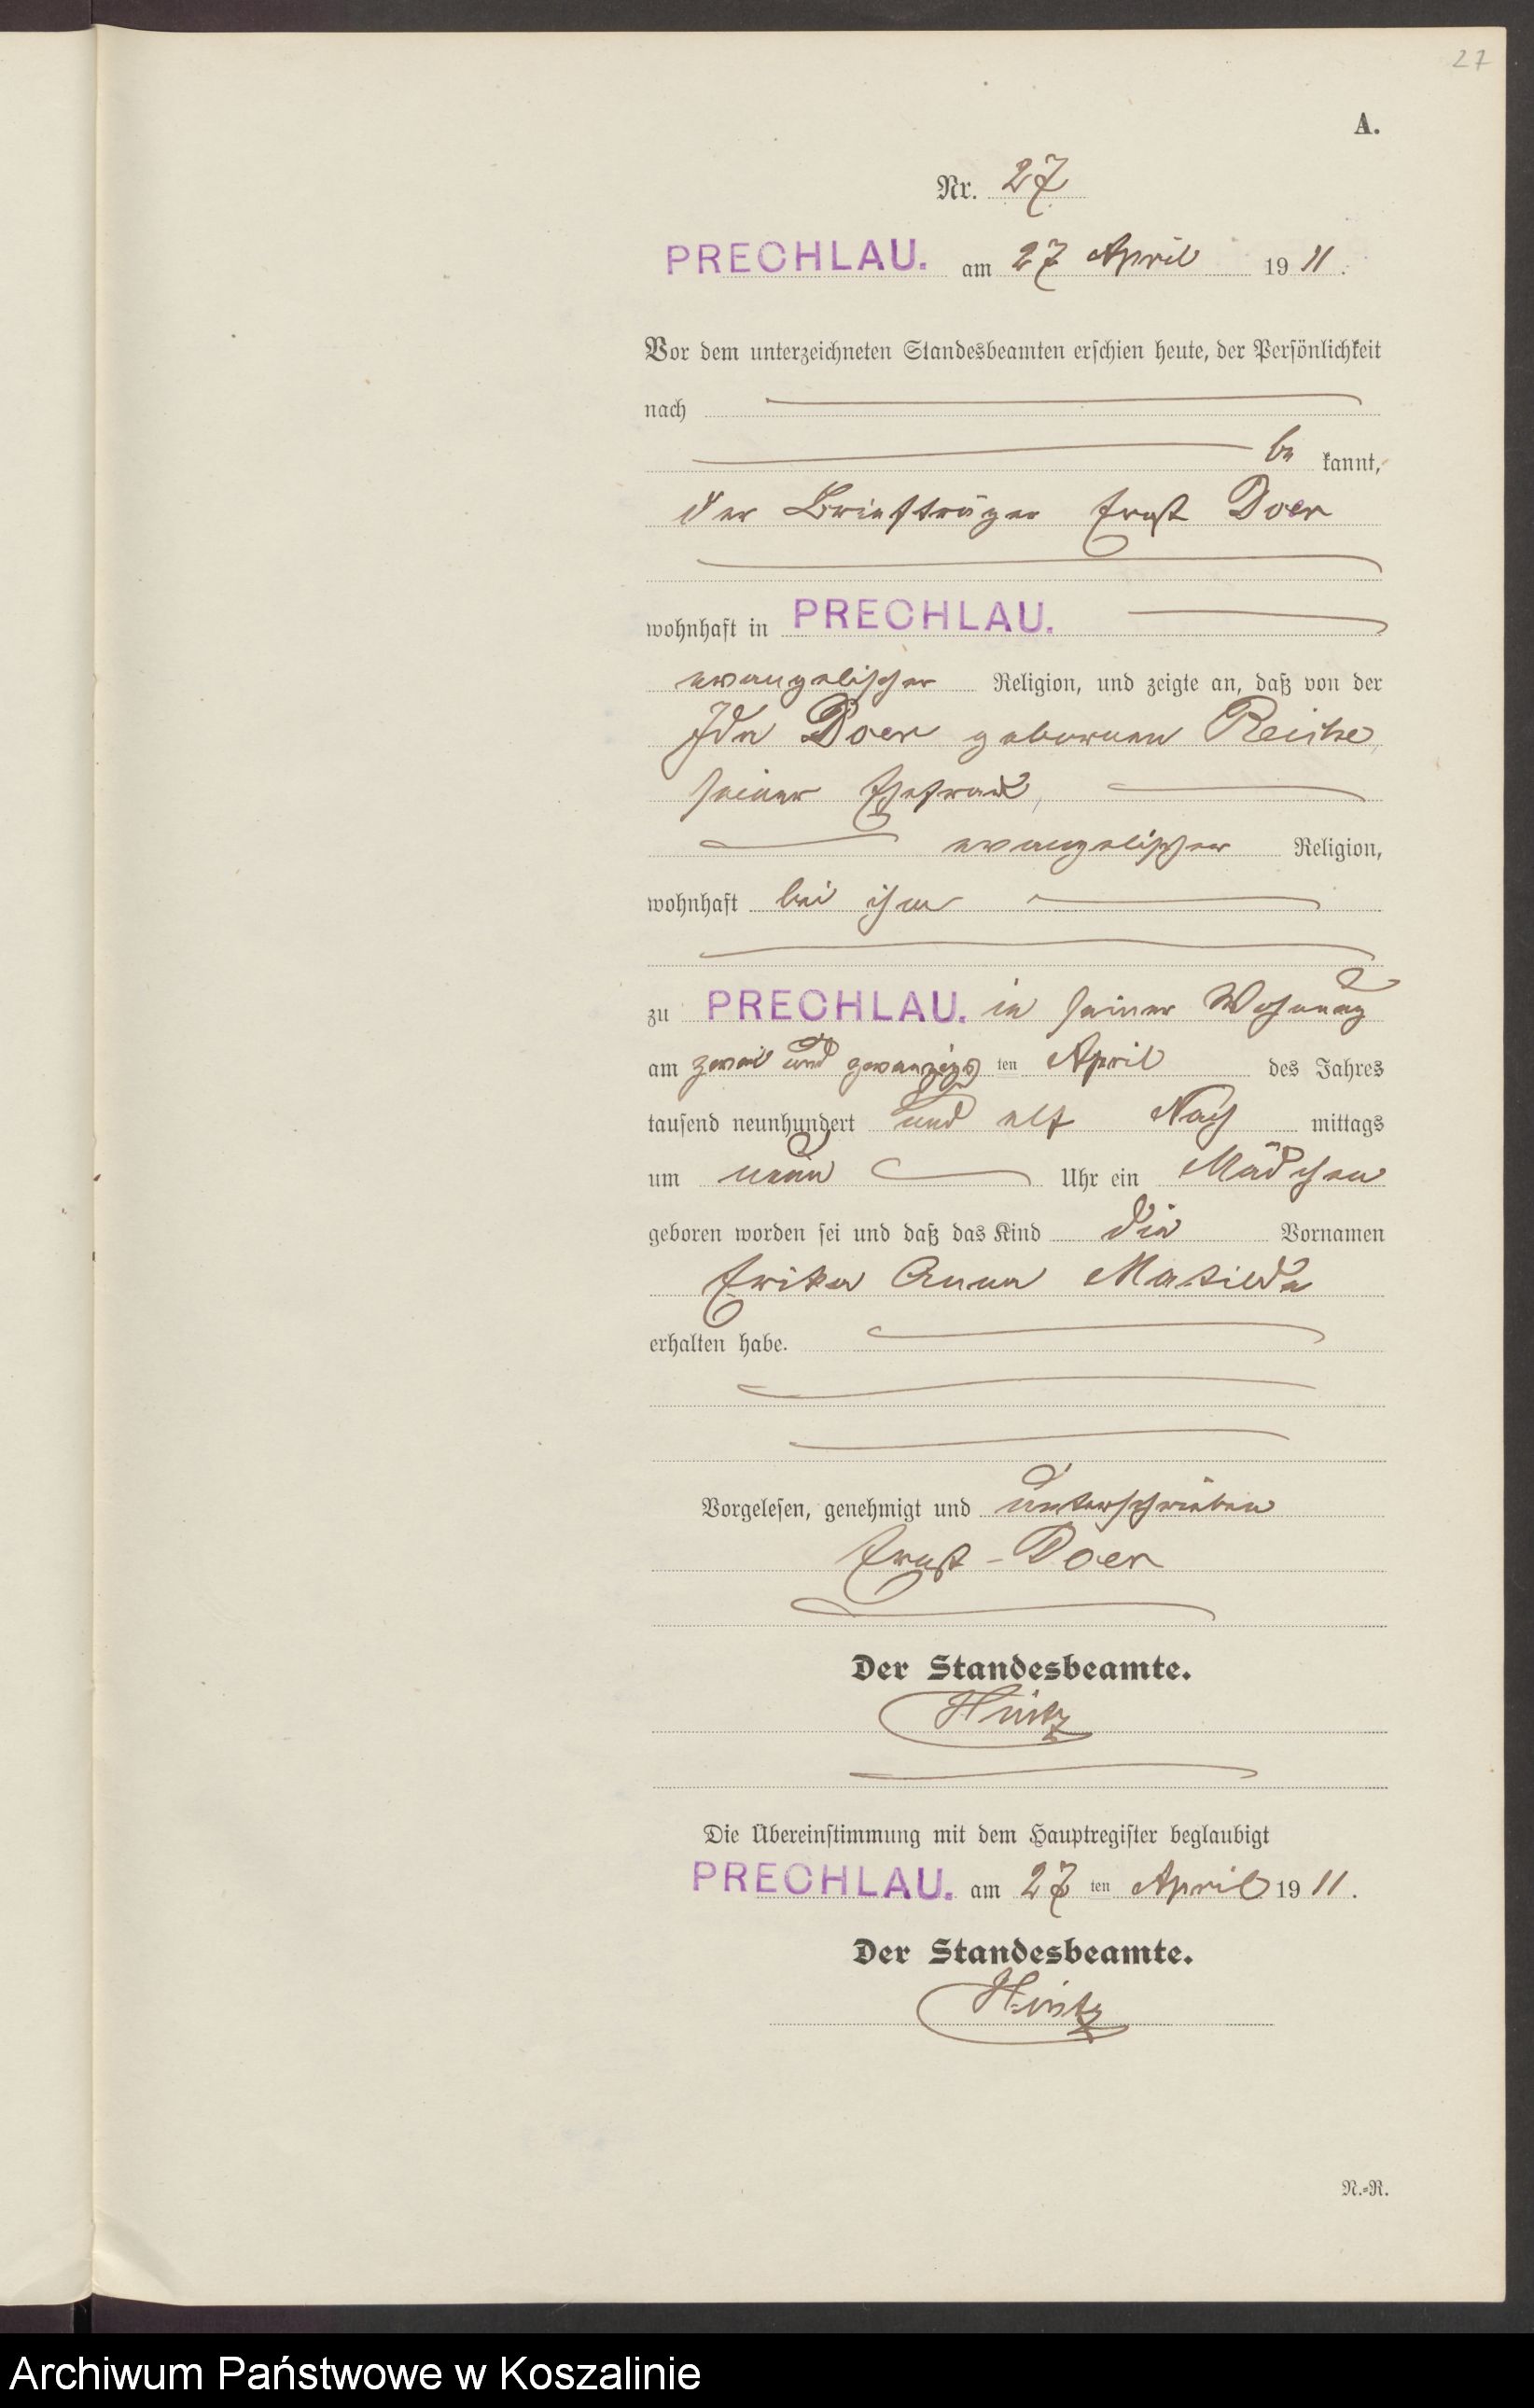 27
A.
Nr. 27
PRECHLAU. am 27 April 1911.
Vor dem unterzeichneten Standesbeamten erschien heute, der Persönlichkeit
nach
be kannt,
der Briefträger Ernst Doer
wohnhaft in PRECHLAU.
evangelischer Religion, und zeigte an, daß von der
Ida Doer geborenen
seiner Ehefrau,
evangelischer Religion,
wohnhaft bei ihm
zu PRECHLAU. in seiner Wohnung
am zwei und zwanzigs ten April des Jahres
tausend neunhundert und elf Nach mittags
um neun Uhr ein Mädchen
geboren worden sei und daß das Kind die Vornamen
Erika Anna Matilde
erhalten habe.
Vorgelesen, genehmigt und unterschrieben
Ernst Doer
Der Standesbeamte.
Hintz
Die Übereinstimmung mit dem Hauptregister beglaubigt
PRECHLAU. am 27 ten April 1911.
Der Standesbeamte.
Hintz
N.-R.
Archiwum Państwowe w Koszalinie